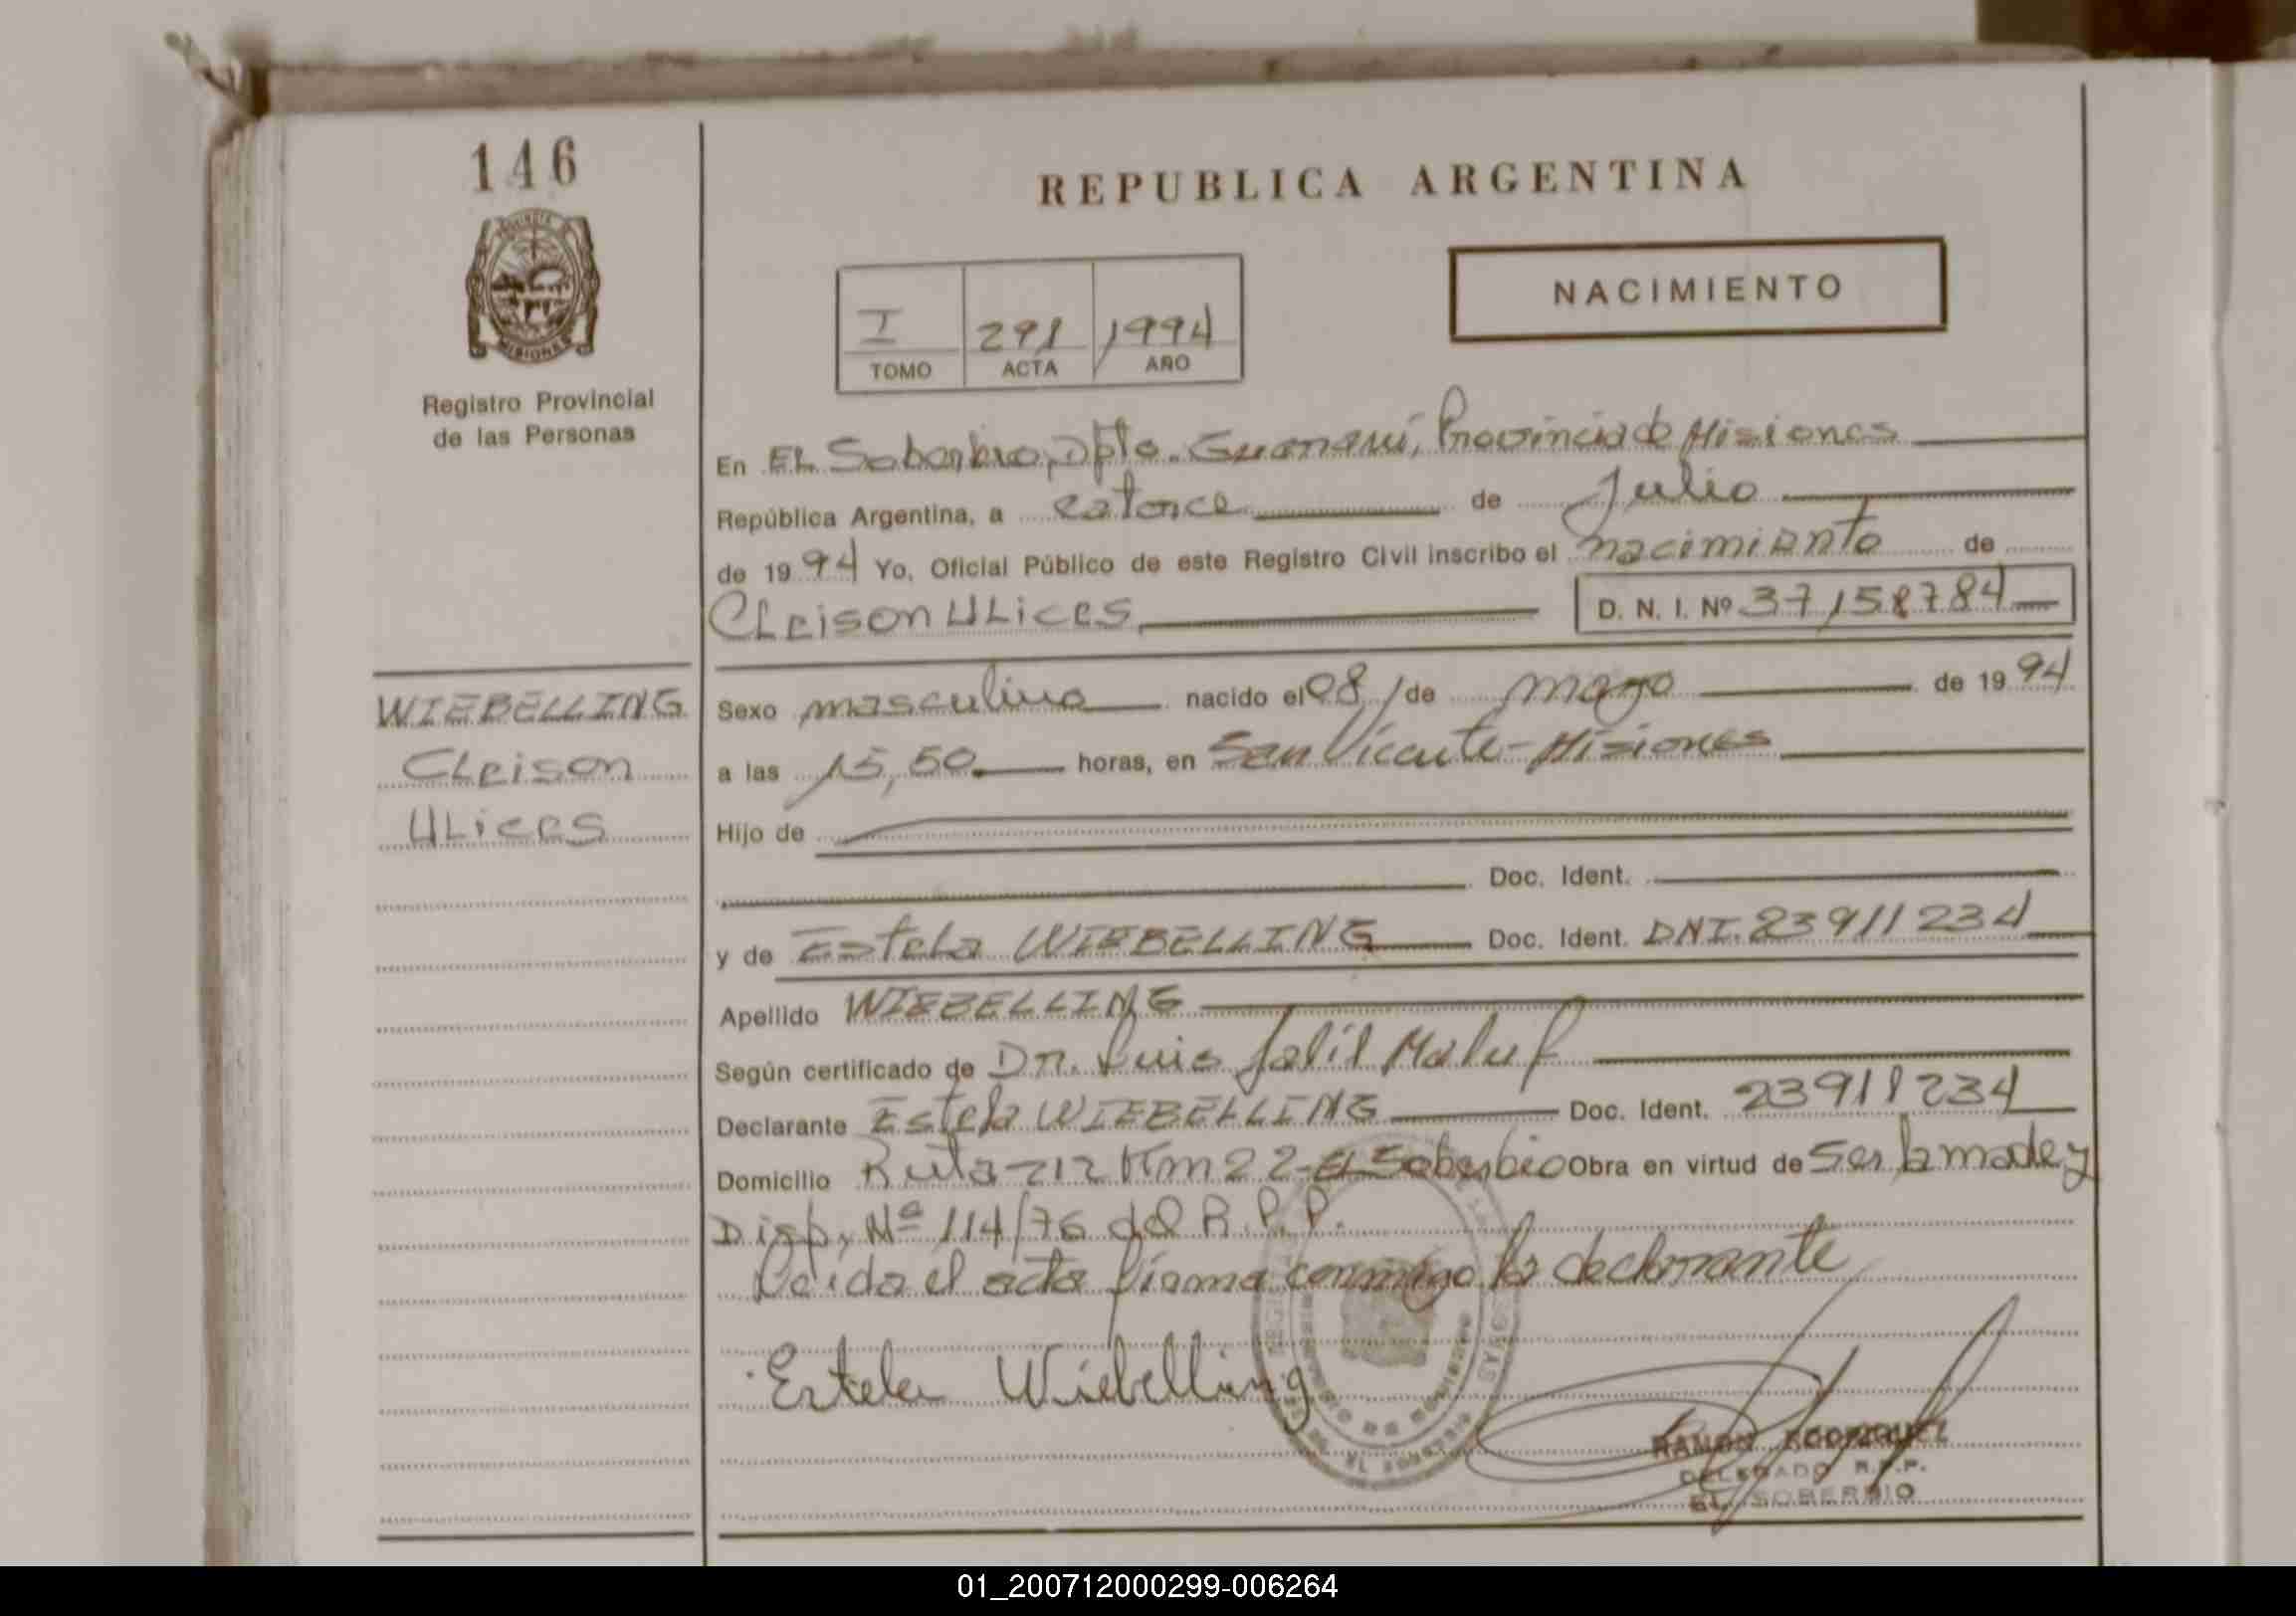 146
REPUBLICA ARGENTINA
NACIMIENTO
I 291 1994
TOMO ACTA AÑO
MISIONES
Registro Provincial
de las Personas
En EL Soberbio, Dpto. Guaraní, Provincia de Misiones
República Argentina, a catorce de Julio
de 1994 Yo, Oficial Público de este Registro Civil inscribo el nacimiento de
CLeison ULices D. N. I. Nº 37158784
WIEBELLING
CLeison
ULices
Sexo masculino nacido el 08 de mayo de 1994
a las 15,50 horas, en San Vicente-Misiones
Hijo de
Doc. Ident.
y de Estela WIEBELLING Doc. Ident. DNI. 23911234
Apellido WIEBELLING
Según certificado de Dr. Luis Jalil Maluf
Declarante Estela WIEBELLING Doc. Ident. 23911234
Domicilio Ruta 212 Km 22-El Soberbio Obra en virtud de Ser la madre y
Disp. Nº 114/76 del R.P.P.
Leída el acta firma conmigo la declarante
Estela Wiebelling
RAMON RODRIGUEZ
DELEGADO R.P.P.
EL SOBERBIO
01_200712000299-006264